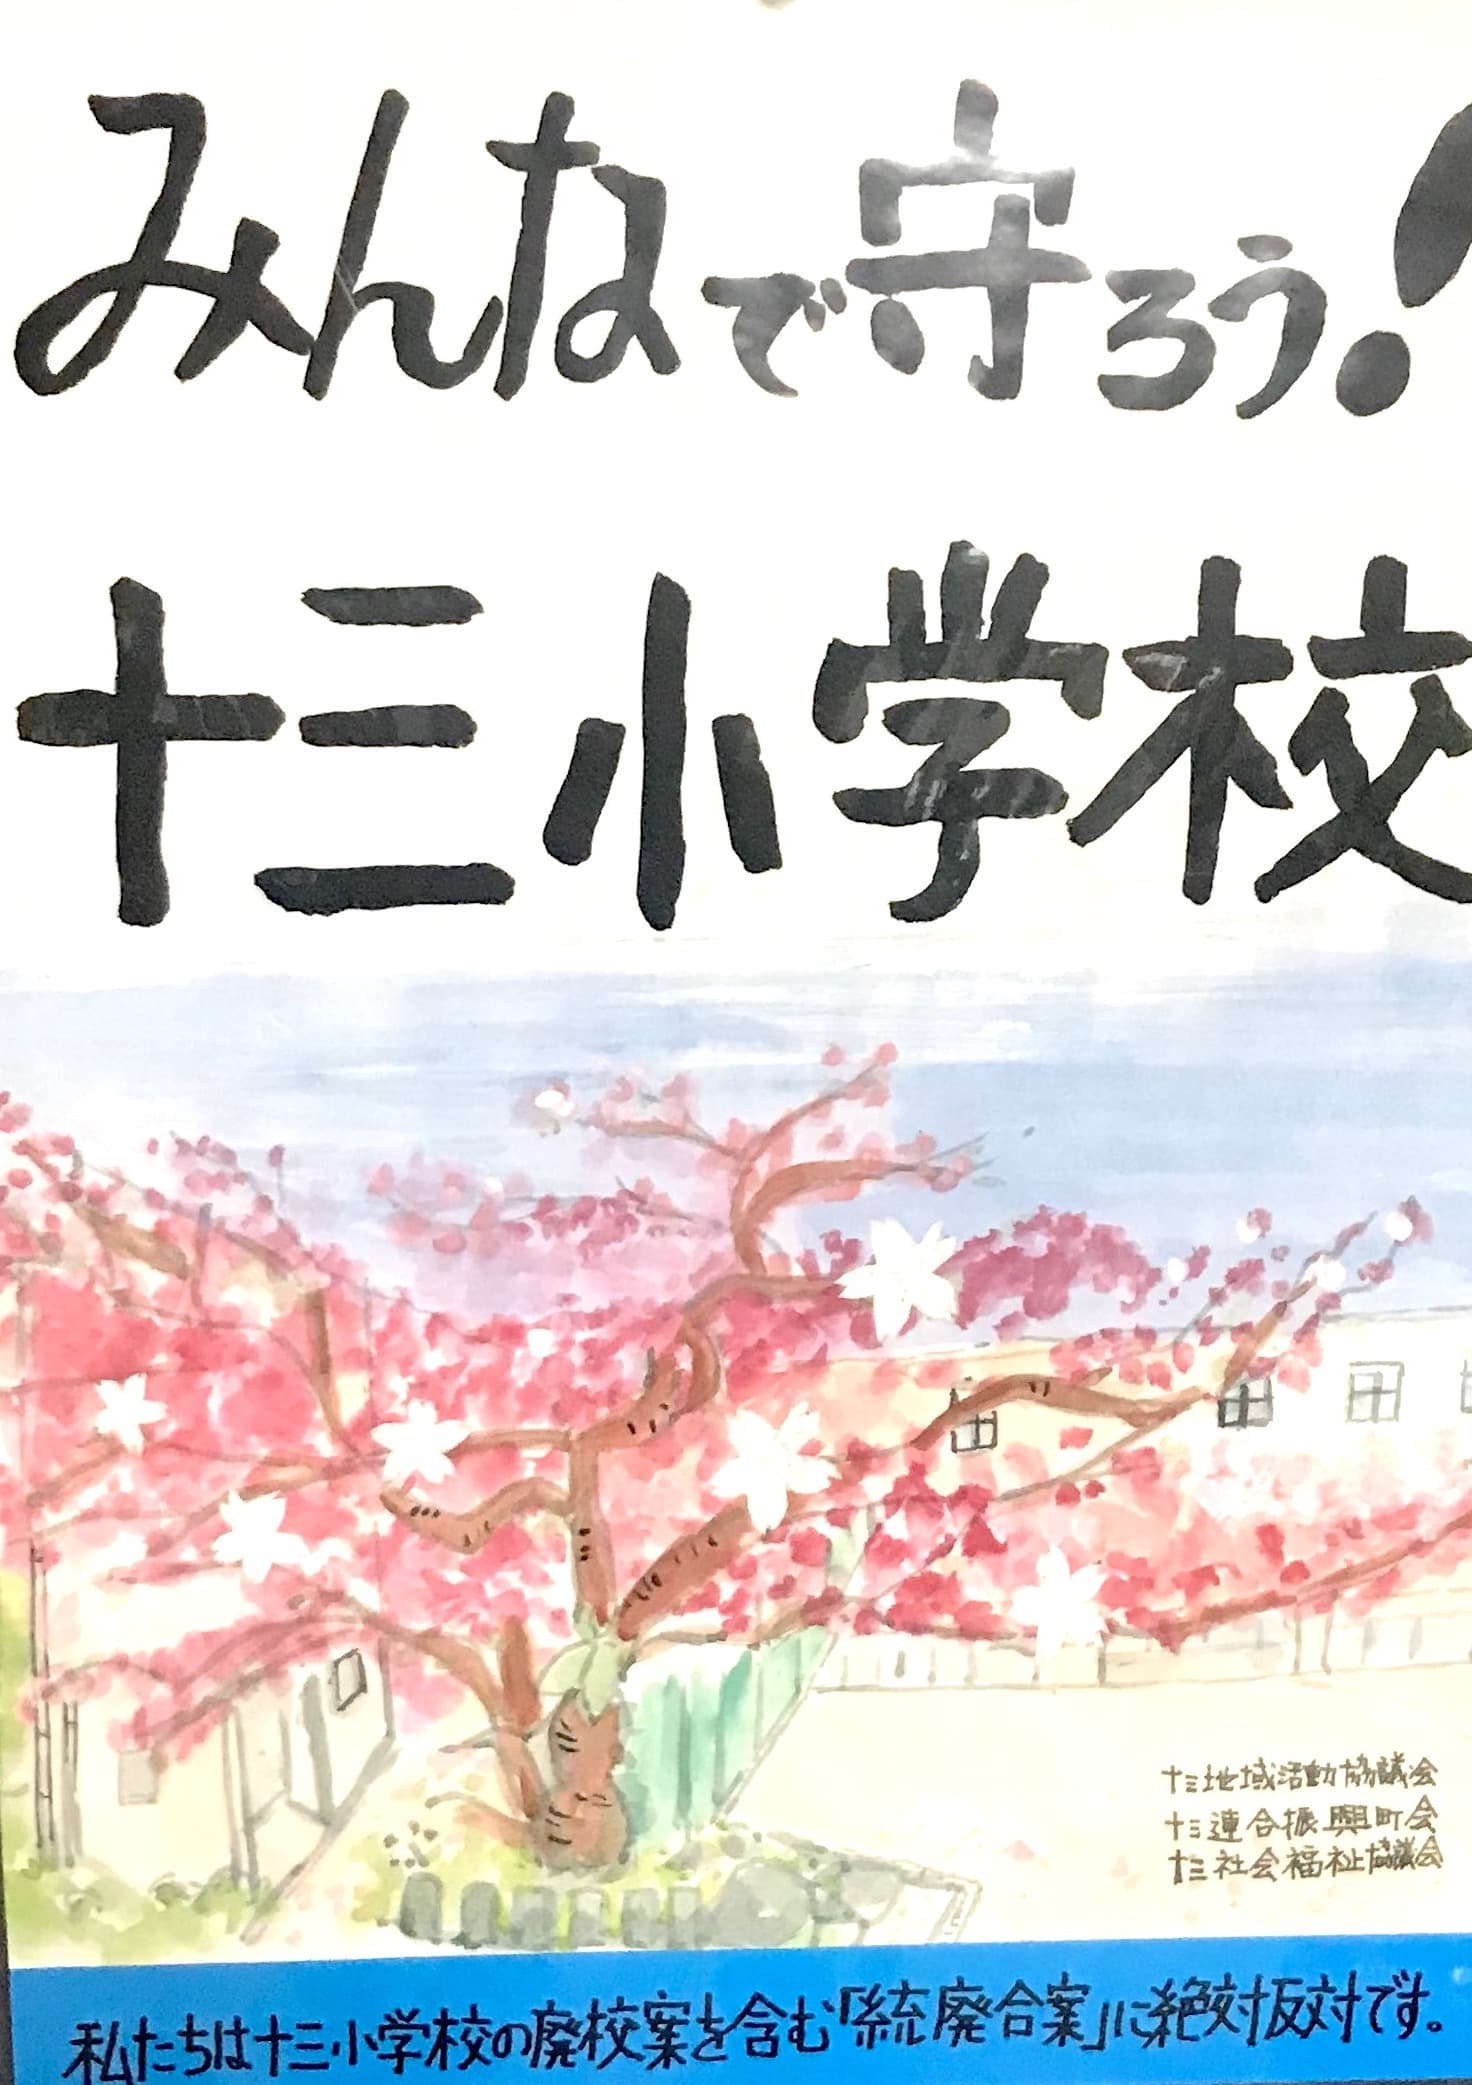 みんなで守ろう!
十三小学校
十三地域活動協議会
十三連合振興町会
十三社会福祉協議会
私たちは十三小学校の廃校案を含む「統廃合案」に絶対反対です。